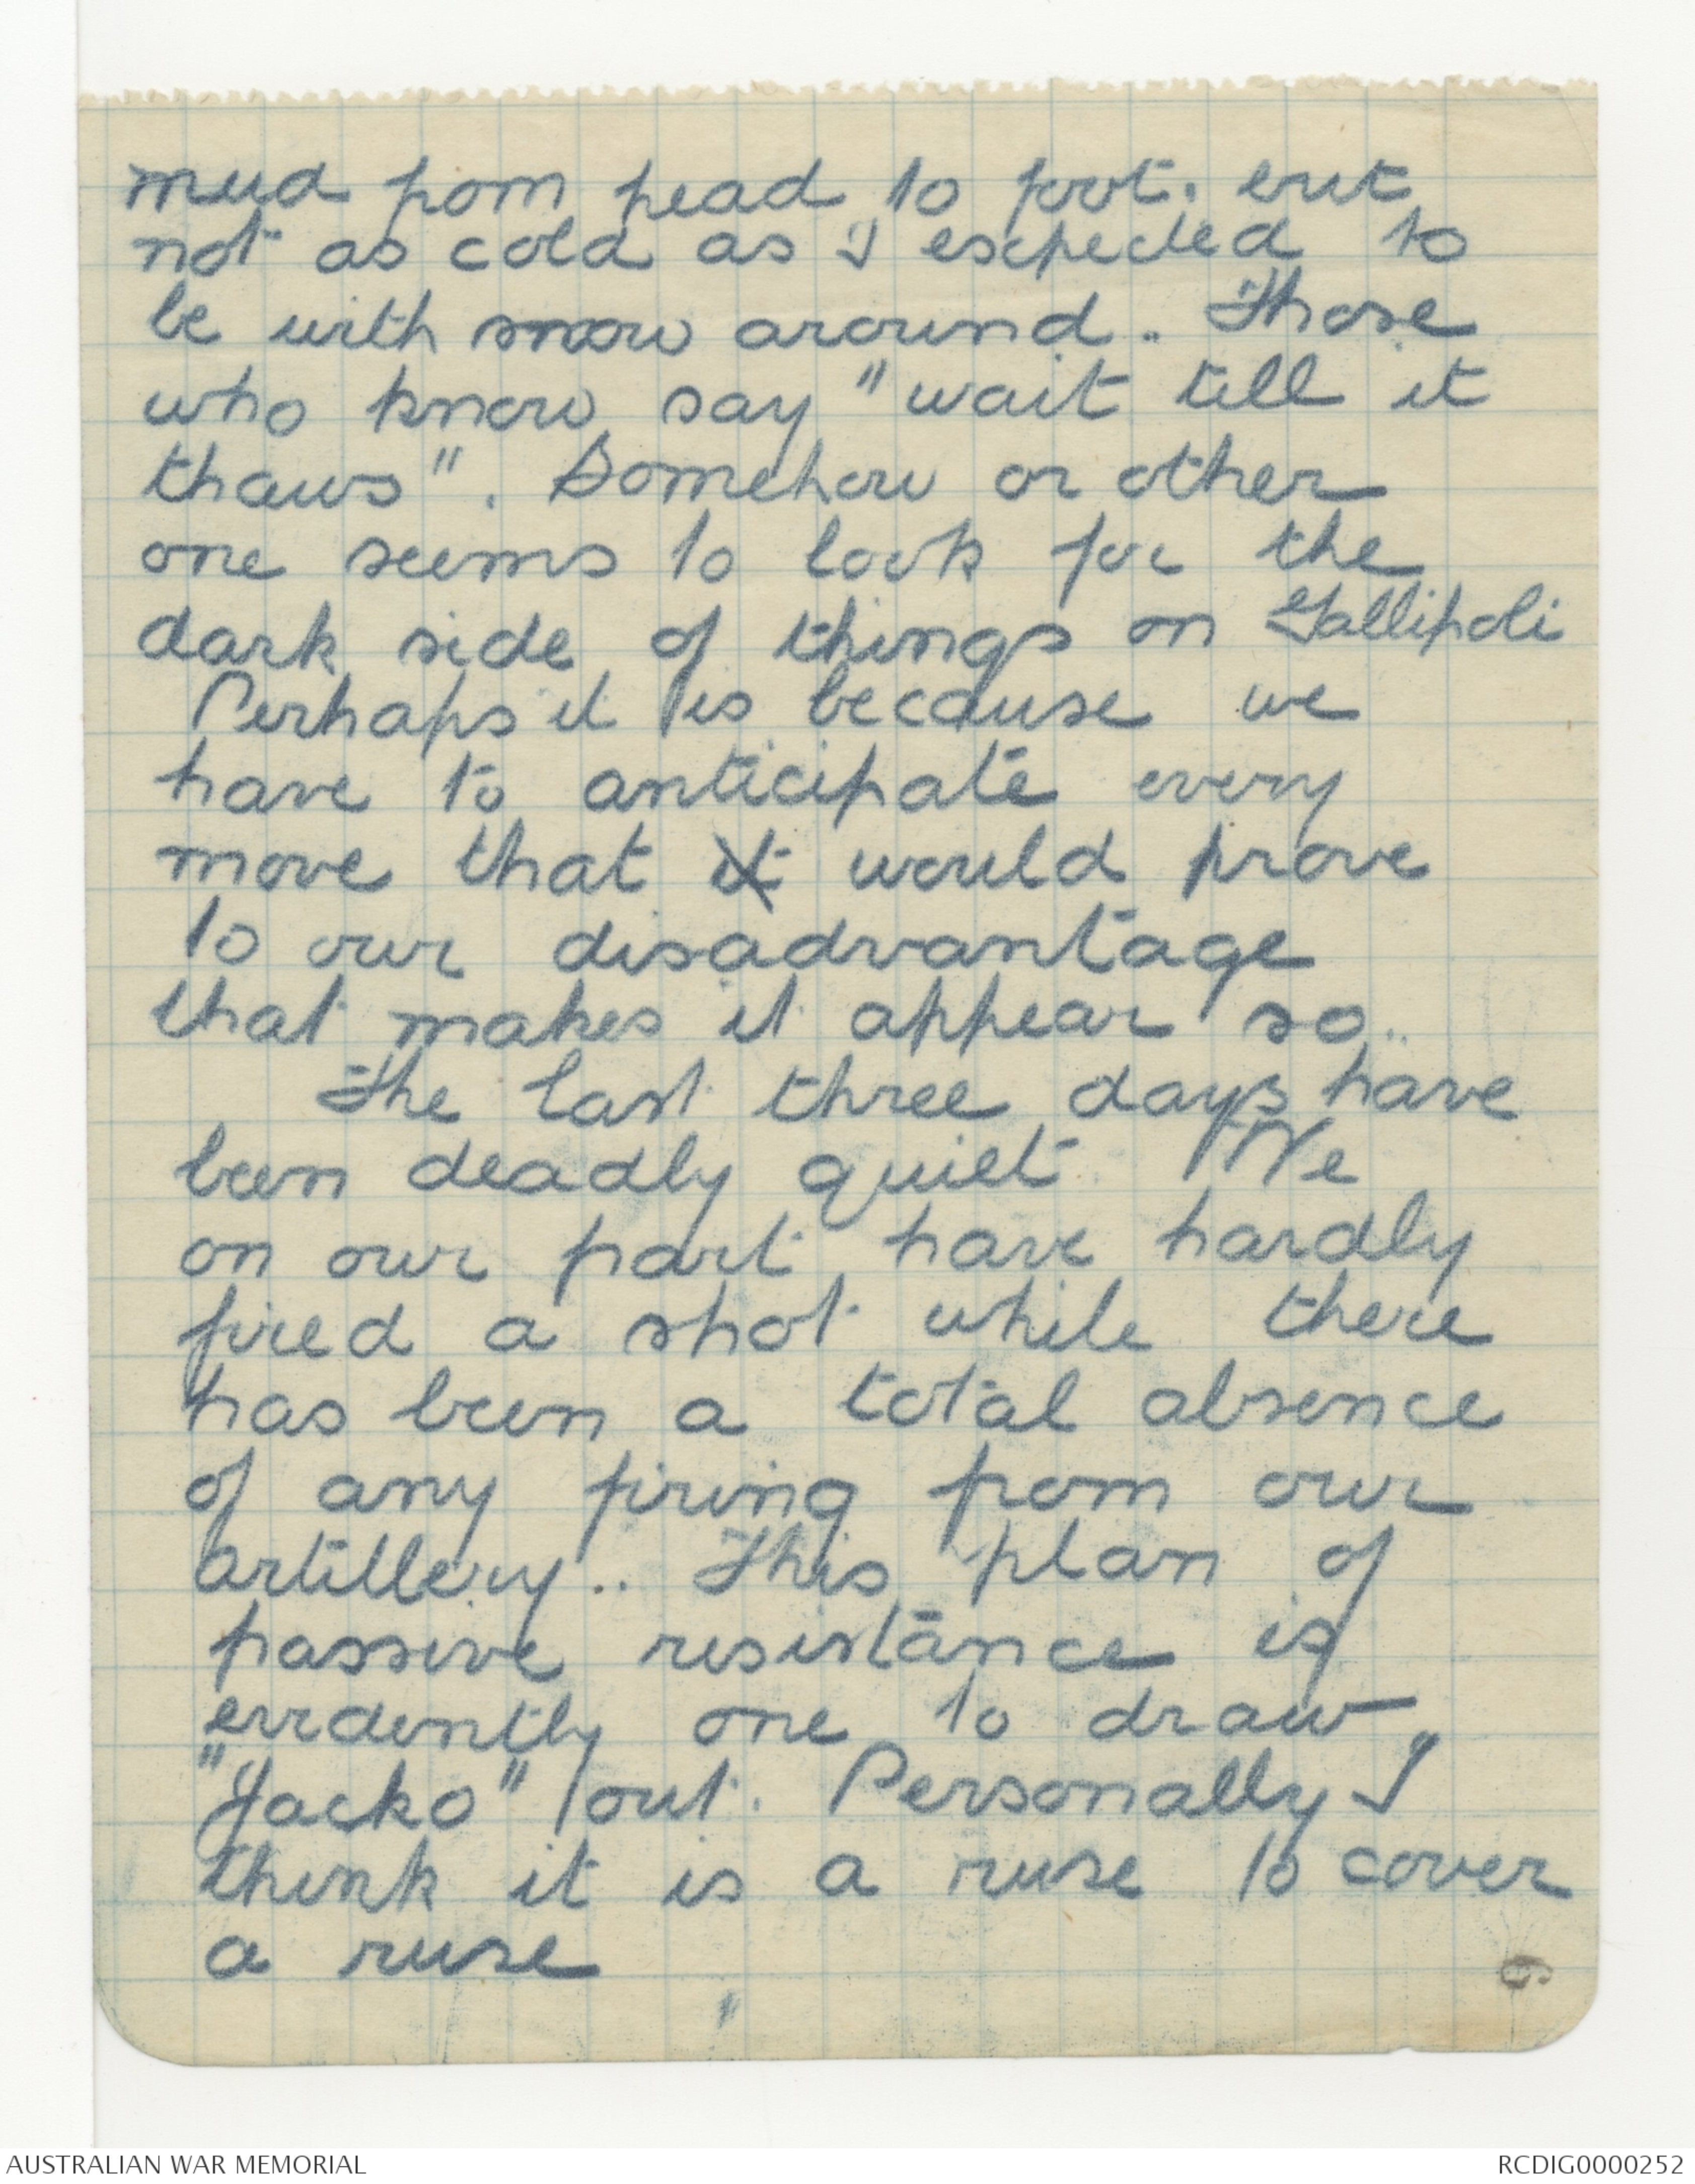 mud from head to foot. but
not as cold as I expected to
be with snow around.. Those
who know say "wait till it
thaws". Somehow or other
one seems to look for the
dark side of things on Gallipoli
Perhaps it is because we
have to anticipate every
move that it would prove
to our disadvantage
that makes it appear so..
The last three days have
been deadly quiet. We
on our part have hardly
fired a shot while there
has been a total absence
of any firing from our
artillery.. This plan of
passive resistance is
evidently one to draw
"Jacko" out. Personally I
think it is a ruse to cover
a ruse
6
AUSTRALIAN WAR MEMORIAL
RCDIG0000252